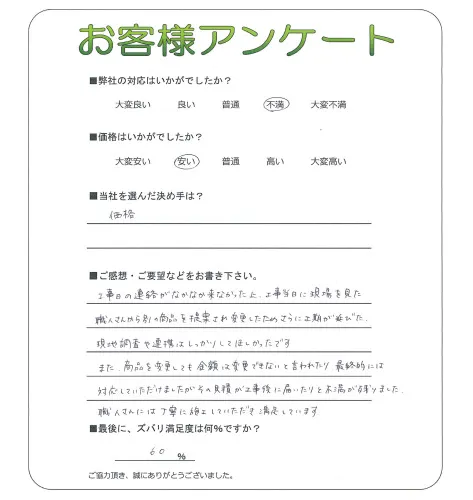 お客様アンケート
■弊社の対応はいかがでしたか？
大変良い 良い 普通 不満 大変不満
■価格はいかがでしたか？
大変安い 安い 普通 高い 大変高い
■当社を選んだ決め手は？
価格
■ご感想・ご要望などをお書き下さい。
工事日の連絡がなかなか来なかった上、工事当日に現場を見た
職人さんから別の商品を提案され変更したためさらに工期が延びた。
現地調査や連携はしっかりしてほしかったです
また、商品を変更しても金額は変更できないと言われたり最終的には
対応していただけましたがその見積が工事後に届いたりと不満が残りました。
職人さんには丁寧に施工していただき満足しています
■最後に、ズバリ満足度は何%ですか？
60 %
ご協力頂き、誠にありがとうございました。